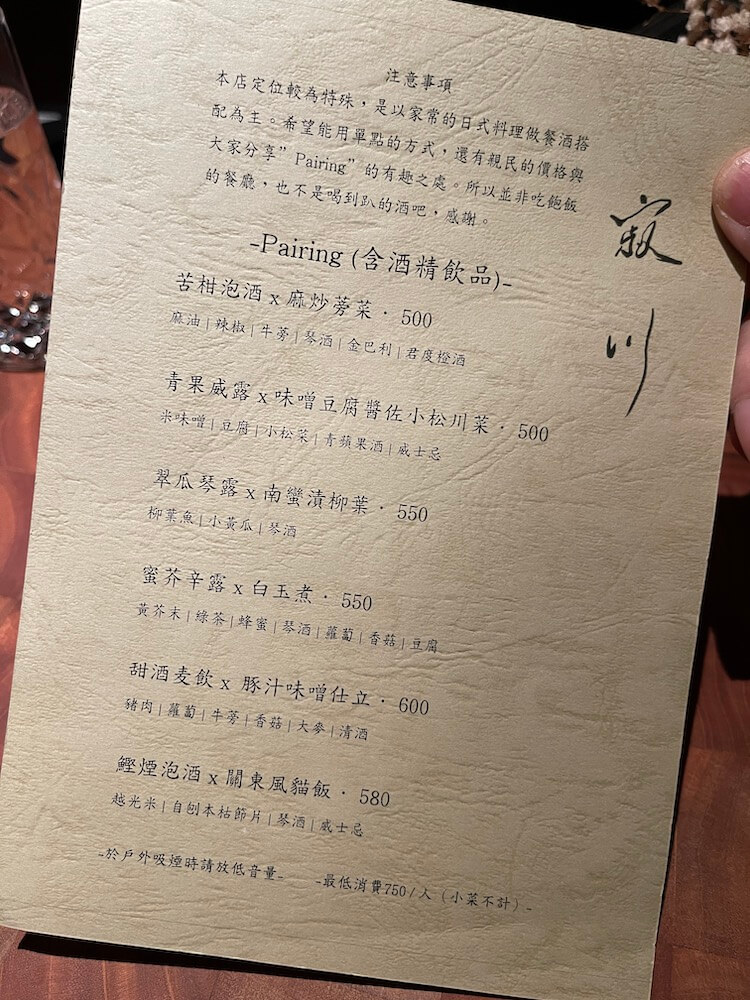 注意事項
本店定位較為特殊，是以家常的日式料理做餐酒搭
配為主。希望能用單點的方式，還有親民的價格與
大家分享”Pairing”的有趣之處。所以並非吃飽飯
的餐廳，也不是喝到趴的酒吧，感謝。
寂川
-Pairing (含酒精飲品)-
苦柑泡酒 x 麻炒蒡菜 · 500
麻油|辣椒|牛蒡|琴酒|金巴利|君度橙酒
青果威露 x 味噌豆腐醬佐小松川菜 · 500
米味噌|豆腐|小松菜|青蘋果酒|威士忌
翠瓜琴露 x 南蠻漬柳葉 · 550
柳葉魚|小黃瓜|琴酒
蜜芥辛露 x 白玉煮 · 550
黃芥末|綠茶|蜂蜜|琴酒|蘿蔔|香菇|豆腐
甜酒麦飲 x 豚汁味噌仕立 · 600
豬肉|蘿蔔|牛蒡|香菇|大麥|清酒
鰹煙泡酒 x 關東風貓飯 · 580
越光米|自刨本枯節片|琴酒|威士忌
-於戶外吸煙時請放低音量- -最低消費750/人（小菜不計）-